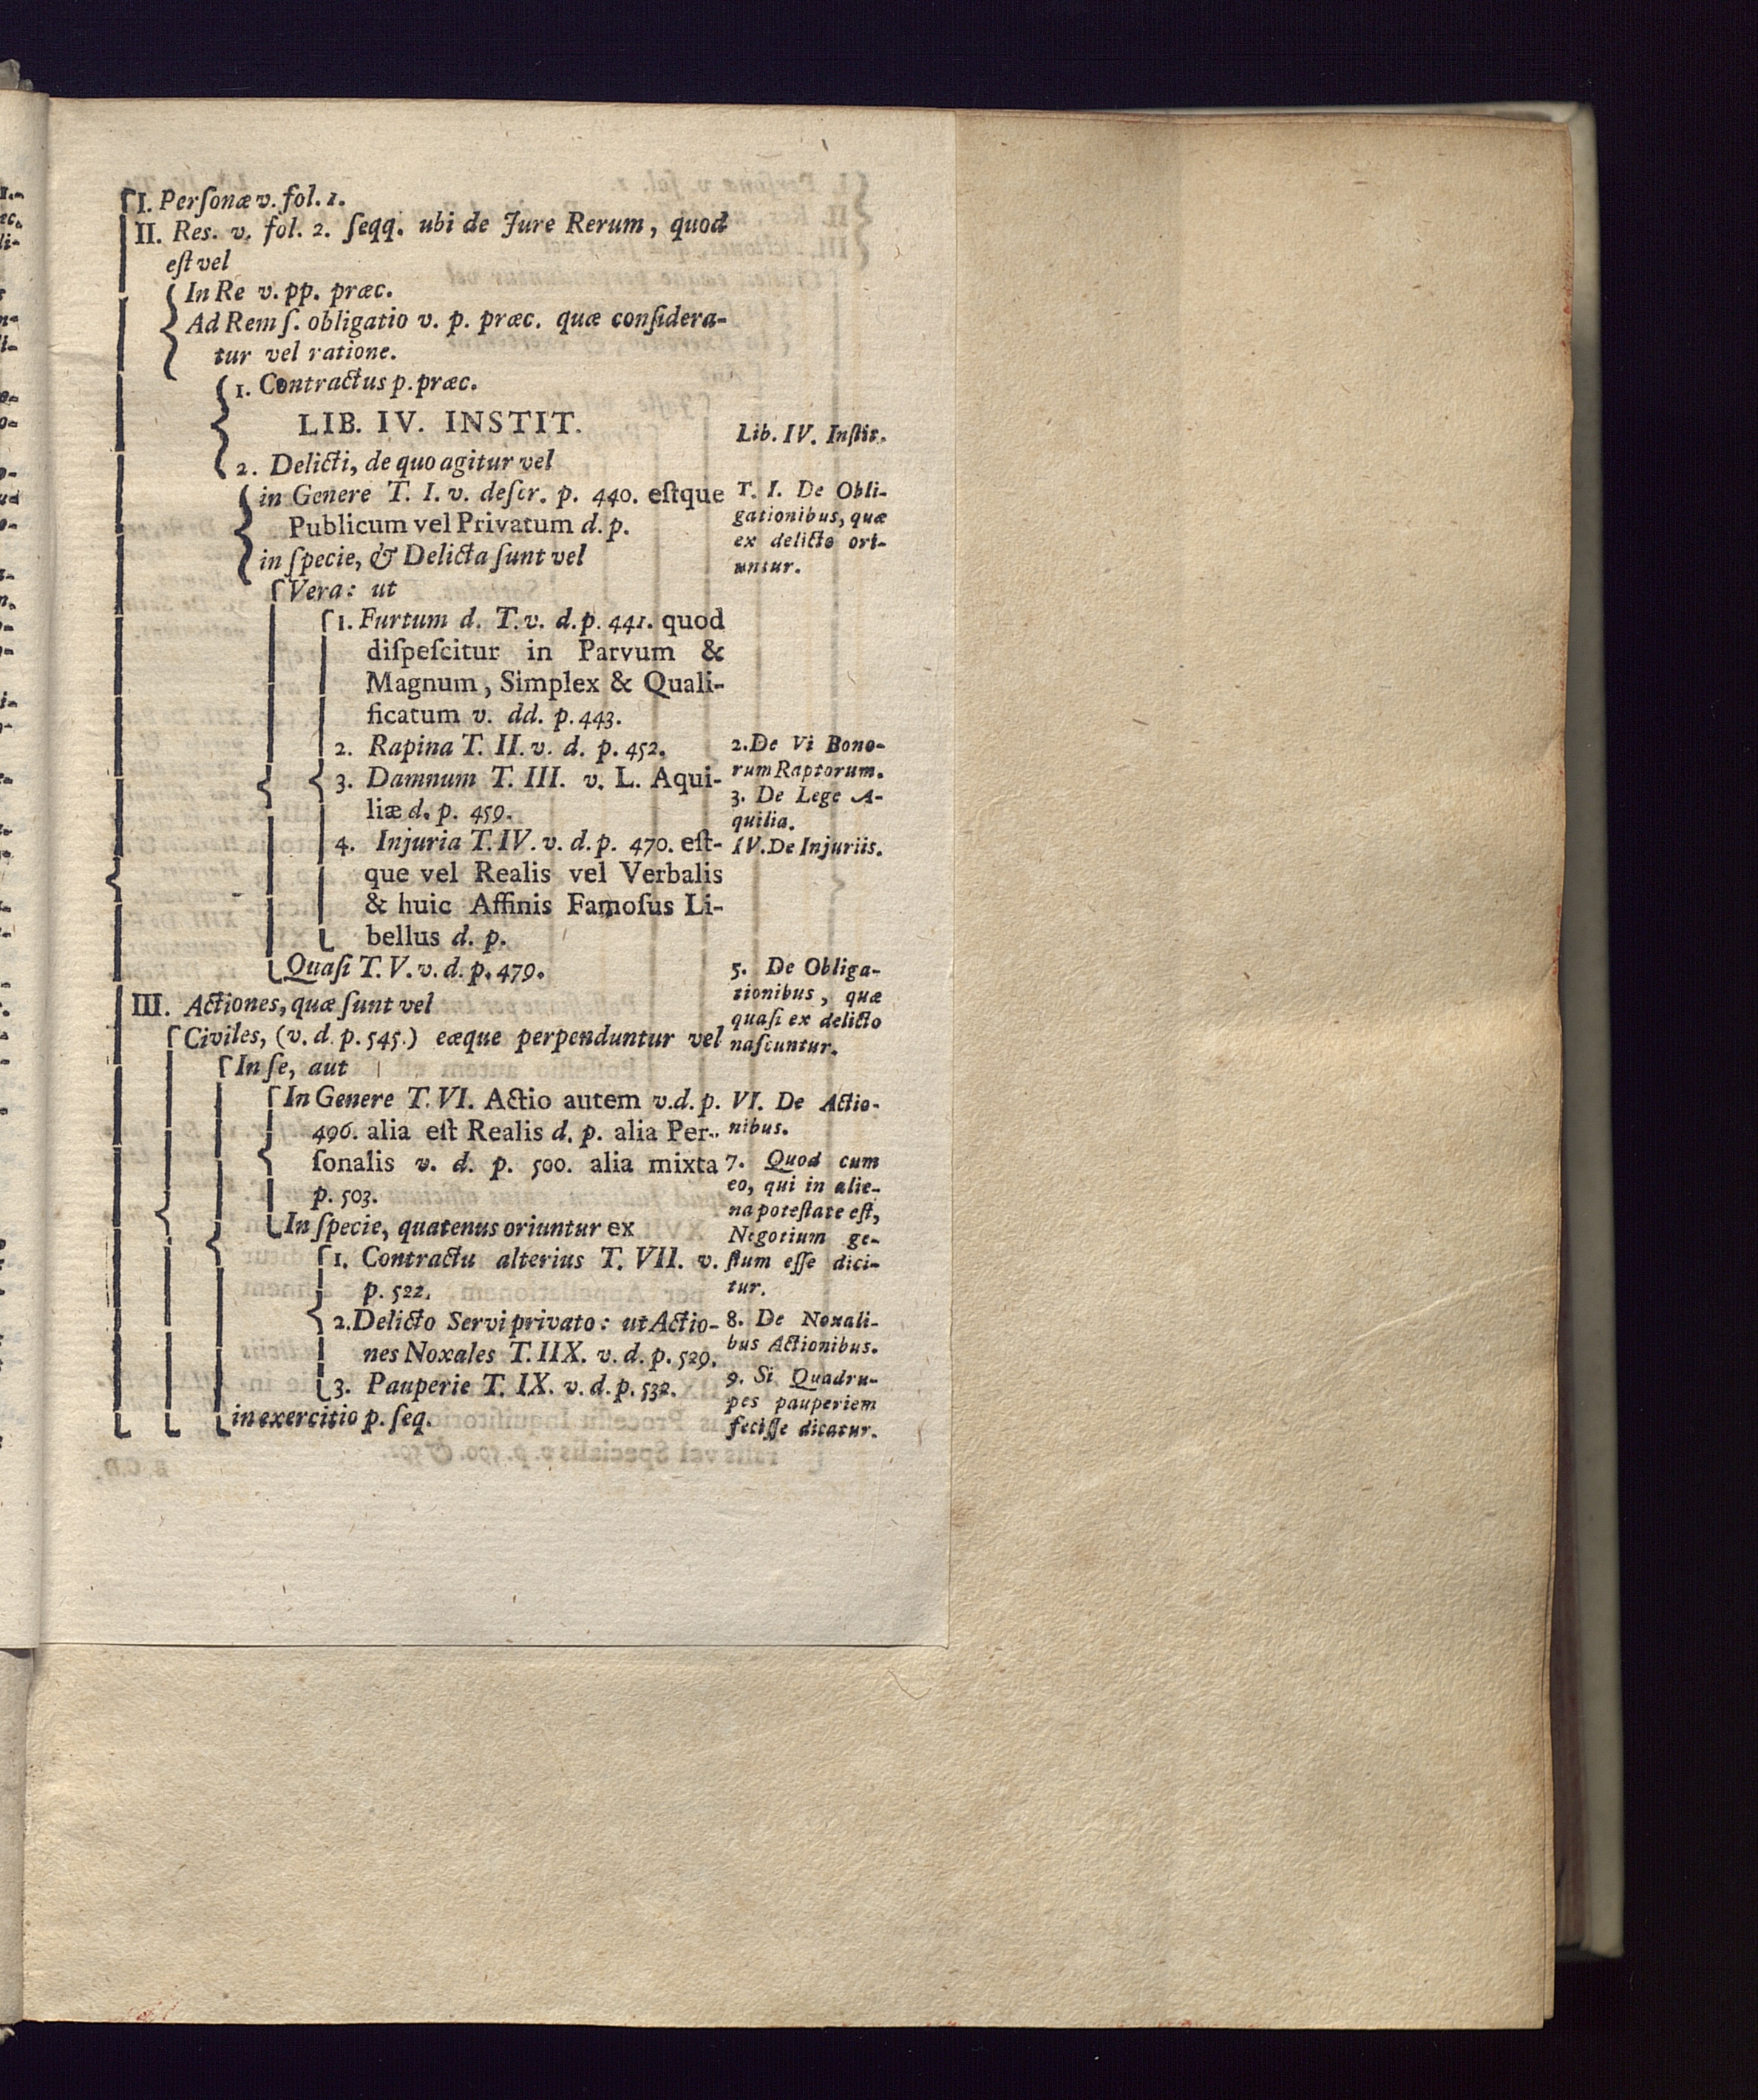 I. Perſonæ v. fol. 1.
II. Res. v. fol. 2. ſeqq. ubi de Jure Rerum, quod
eſt vel
In Re v. pp. præc.
Ad Rem ſ. obligatio v. p. præc. quæ conſidera-
tur vel ratione.
1. Contractus p. præc.
LIB. IV. INSTIT.
2. Delicti, de quo agitur vel
in Genere T. I. v. deſcr. p. 440. eſtque
Publicum vel Privatum d. p.
in ſpecie, & Delicta ſunt vel
Vera: ut
1. Furtum d. T. v. d. p. 441. quod
diſpeſcitur in Parvum &
Magnum, Simplex & Quali-
ficatum v. dd. p. 443.
2. Rapina T. II. v. d. p. 452.
3. Damnum T. III. v. L. Aqui-
liæ d. p. 459.
4. Injuria T. IV. v. d. p. 470. eſt-
que vel Realis vel Verbalis
& huic Affinis Famoſus Li-
bellus d. p.
Quaſi T. V. v. d. p. 479.
III. Actiones, quæ ſunt vel
Civiles, (v. d. p. 545.) eæque perpenduntur vel
In ſe, aut
In Genere T. VI. Actio autem v. d. p.
496. alia eſt Realis d. p. alia Per-
ſonalis v. d. p. 500. alia mixta
p. 503.
In ſpecie, quatenus oriuntur ex
1. Contractu alterius T. VII. v.
p. 522.
2. Delicto Servi privato: ut Actio-
nes Noxales T. IIX. v. d. p. 529.
3. Pauperie T. IX. v. d. p. 532.
in exercitio p. ſeq.
Lib. IV. Inſtit.
T. I. De Obli-
gationibus, quæ
ex delicto ori-
untur.
2. De Vi Bono-
rum Raptorum.
3. De Lege A-
quilia.
IV. De Injuriis.
5. De Obliga-
tionibus, quæ
quaſi ex delicto
naſcuntur.
VI. De Actio-
nibus.
7. Quod cum
eo, qui in alie-
na poteſtate eſt,
Negotium ge-
ſtum eſſe dici-
tur.
8. De Noxali-
bus Actionibus.
9. Si Quadru-
pes pauperiem
feciſſe dicatur.